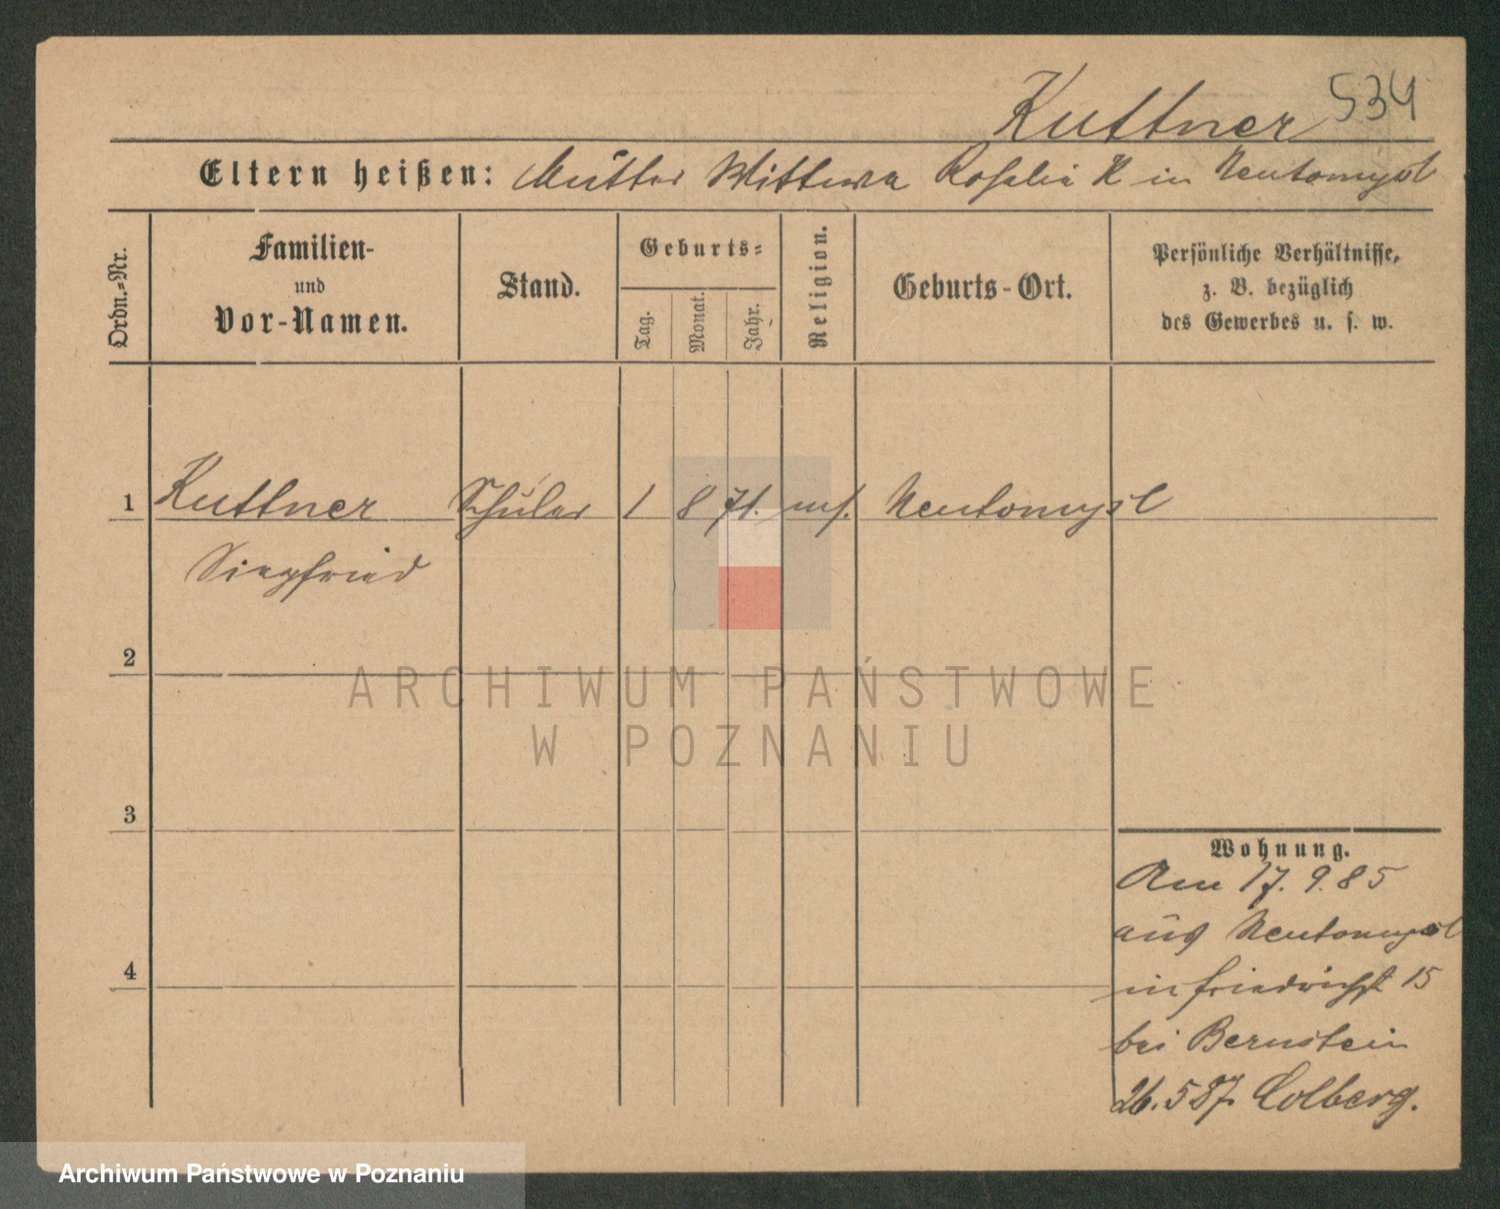 Kuttner 534
Eltern heißen: Mutter Wittwe Rosalie K in Neutomysl
Ordn.-Nr.
Familien-
und
Vor-Namen.
Stand.
Geburts-
Tag.
Monat.
Jahr.
Religion.
Geburts-Ort.
Persönliche Verhältnisse,
z. B. bezüglich
des Gewerbes u. s. w.
1 Kuttner Schüler 1 8 71. mos. Neutomysl
Siegfried
2
ARCHIWUM PAŃSTWOWE
W POZNANIU
3
Wohnung.
Am 17. 9. 85
aus Neutomysl
in Friedrichst 15
4
bei Bernstein
26. 5 87. Colberg.
Archiwum Państwowe w Poznaniu